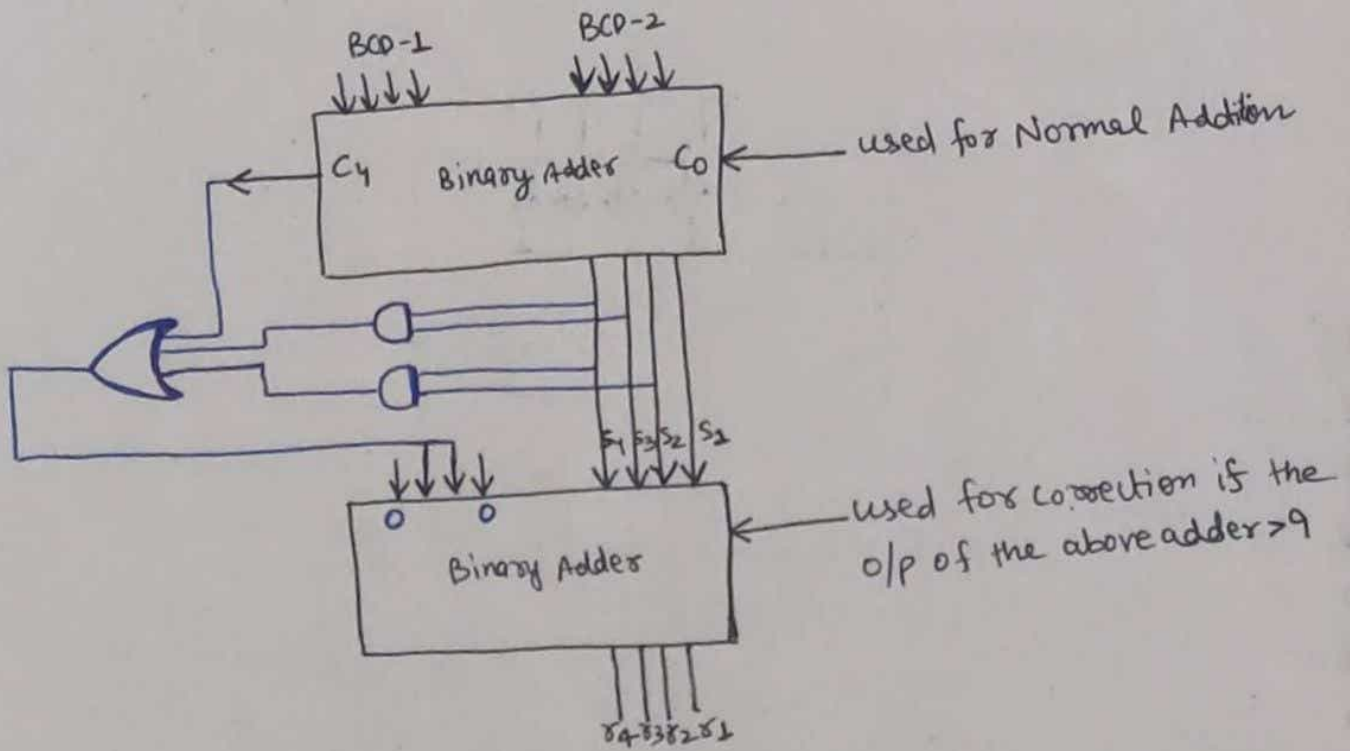 BCD-1
BCD-2
C4 Binary Adder C0
used for Normal Addition
S4 S3 S2 S1
0 0
Binary Adder
used for correction if the
o/p of the above adder >9
r4 r3 r2 r1